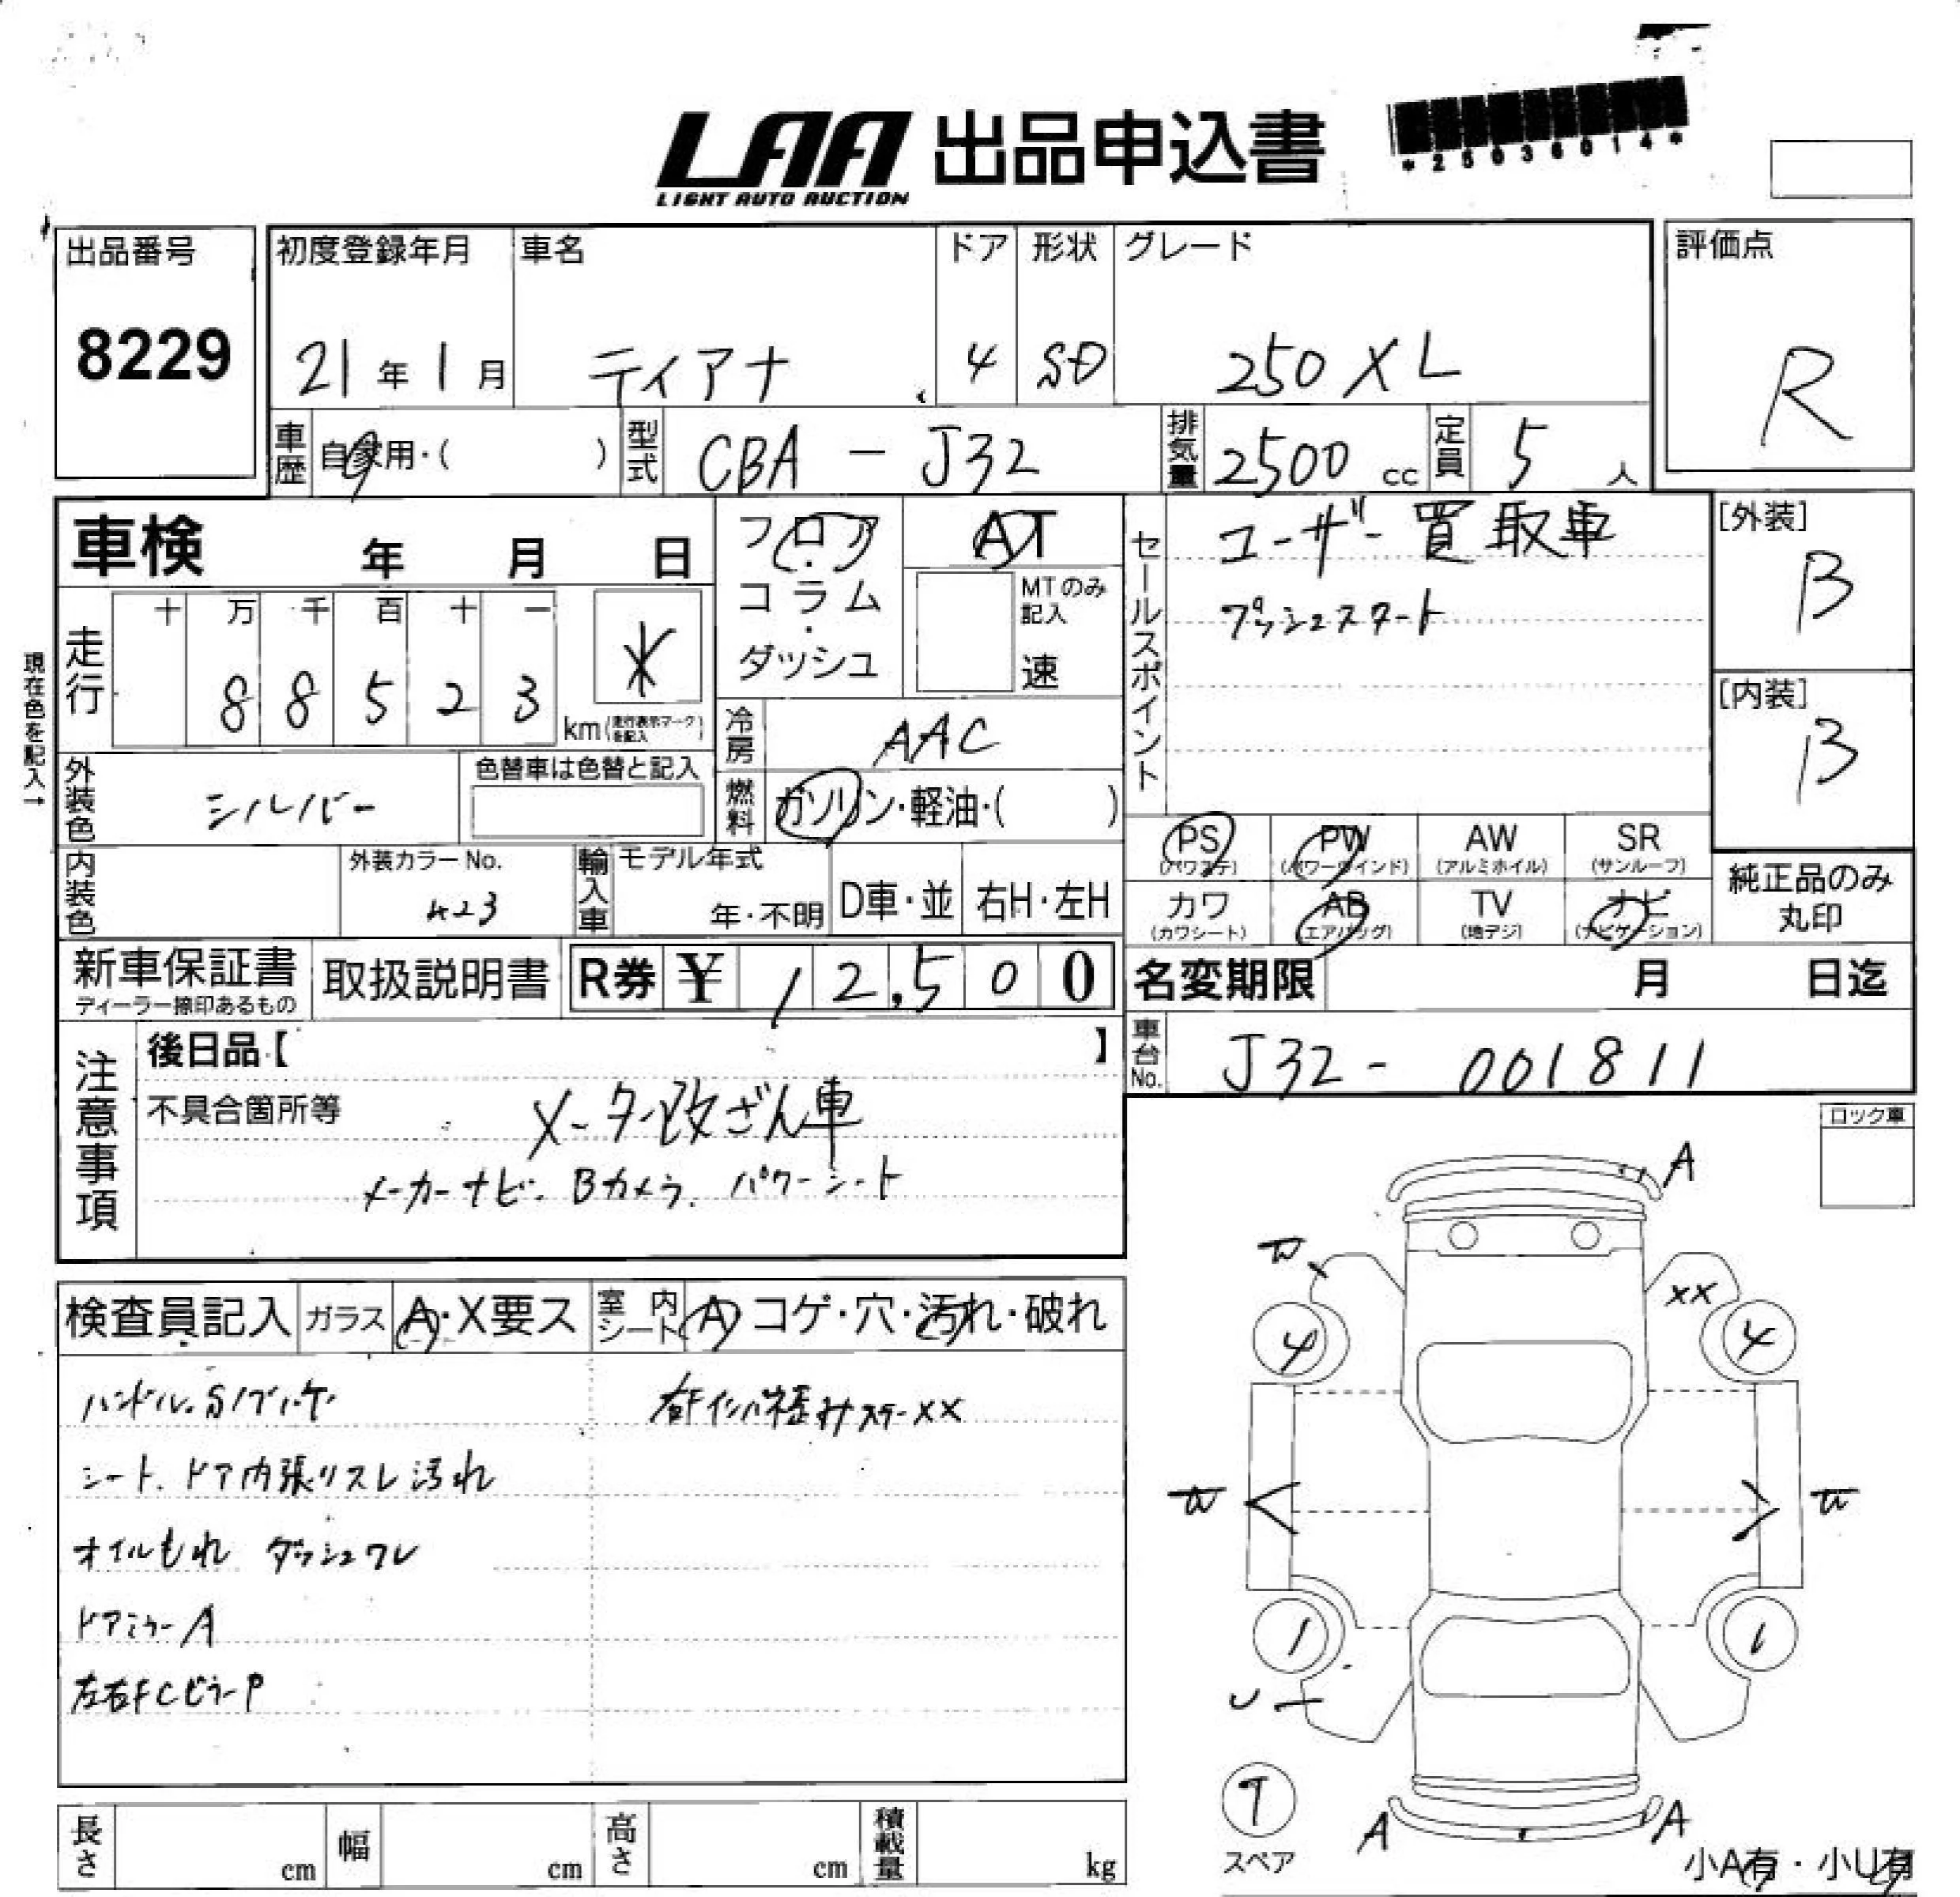 LAA 出品申込書
LIGHT AUTO AUCTION
*25036014*
出品番号
8229
初度登録年月
21年1月
車名
ティアナ
ドア
4
形状
SD
グレード
250XL
評価点
R
車歴 自家用・( )
型式 CBA-J32
排気量 2500cc
定員 5人
車検 年 月 日
フロア・コラム・ダッシュ
AT
MTのみ記入
速
セールスポイント
ユーザー買取車
プッシュスタート
[外装]
B
[内装]
B
現在色を記入→
走行
十 万 千 百 十 一
8 8 5 2 3 km(走行表示マークを記入)
*
冷房 AAC
燃料 ガソリン・軽油・( )
外装色 シルバー
色替車は色替と記入
内装色
外装カラーNo.
K23
輸入車
モデル年式
年・不明
D車・並
右H・左H
PS (パワステ)
PW (パワーウインド)
AW (アルミホイル)
SR (サンルーフ)
カワ (カワシート)
AB (エアバッグ)
TV (地デジ)
ナビ (ナビゲーション)
純正品のみ
丸印
新車保証書
ディーラー捺印あるもの
取扱説明書
R券 ¥ 12,500
名変期限 月 日迄
車台No. J32-001811
注意事項
後日品【 】
不具合箇所等
メーター改ざん車
メーカーナビ. Bカメラ. パワーシート
ロック車
検査員記入 ガラス A・X要ス 室内シート A コゲ・穴・汚れ・破れ
シート. ドア内張りスレ汚れ
オイルもれ ダッシュワレ
ドアミラーA
左右FCピラーP
A
XX
4
4
1
1
U
T
スペア
A
A
小A有・小U有
長さ cm
幅 cm
高さ cm
積載量 kg